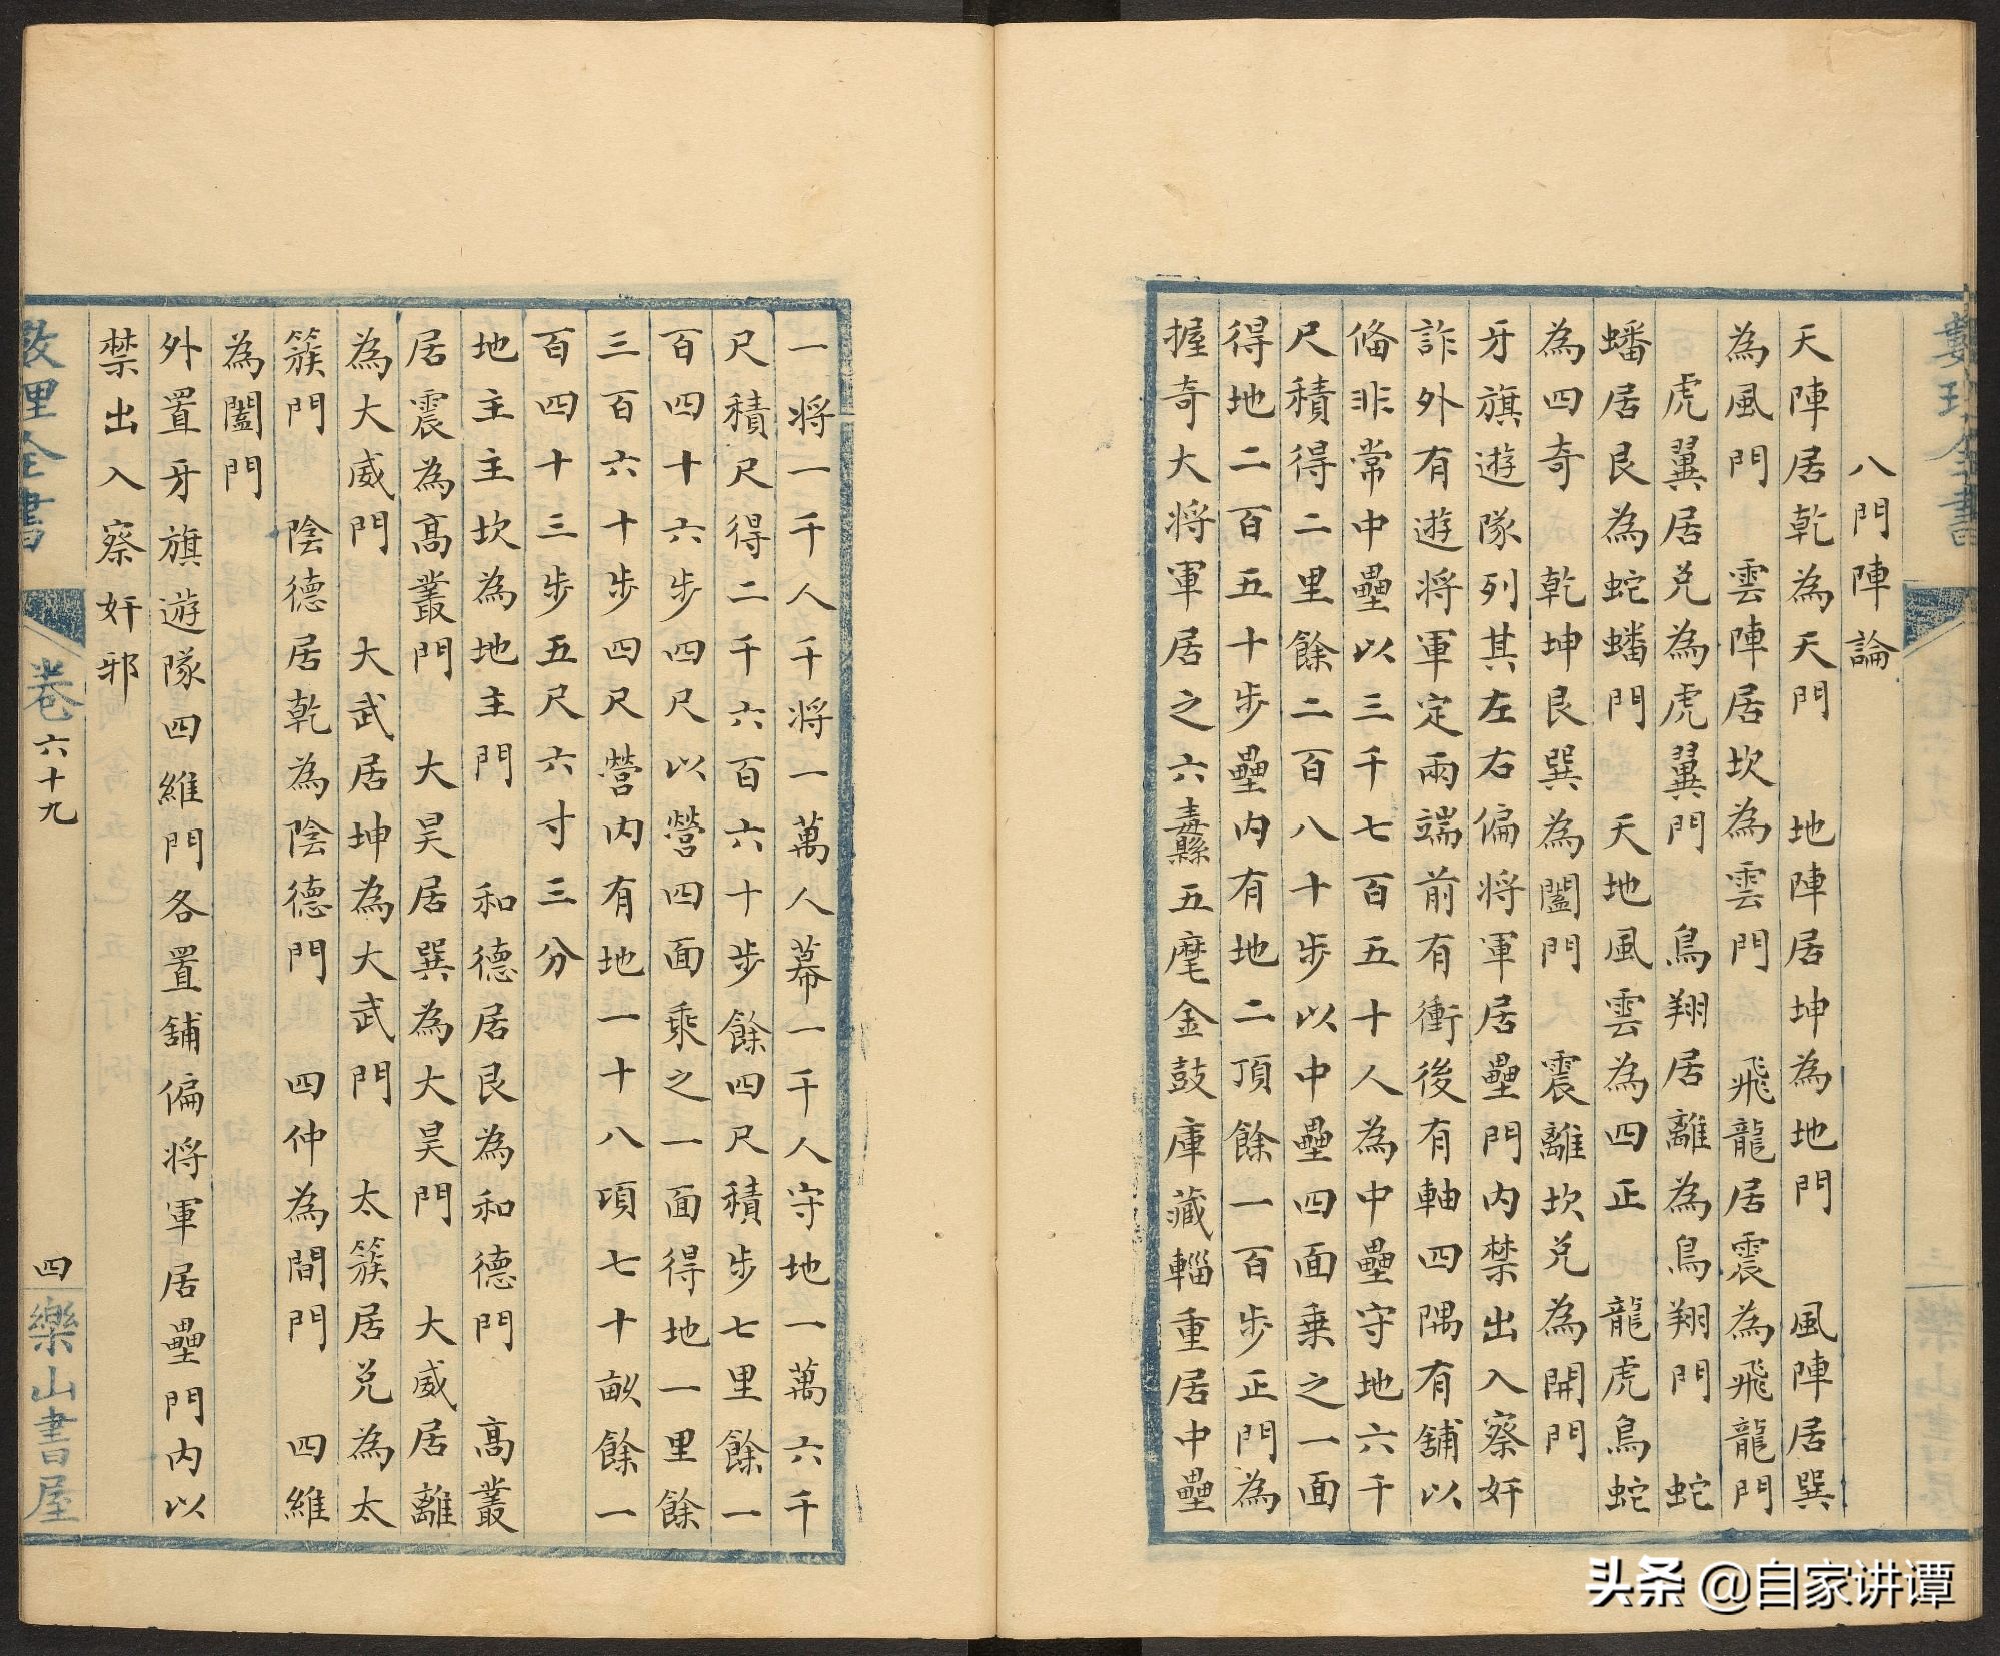 八門陣論
天陣居乾為天門　地陣居坤為地門　風陣居巽
為風門　雲陣居坎為雲門　飛龍居震為飛龍門
虎翼居兌為虎翼門　鳥翔居離為鳥翔門　蛇
蟠居艮為蛇蟠門　天地風雲為四正　龍虎鳥蛇
為四奇　乾坤艮巽為闔門　震離坎兌為開門
牙旗遊隊列其左右偏將軍居壘門內禁出入察奸
詐外有遊將軍定兩端前有衝後有軸四隅有舖以
備非常中壘以三千七百五十人為中壘守地六千
尺積得二里餘二百八十步以中壘四面乗之一面
得地二百五十步壘內有地二頃餘一百步正門為
握奇大將軍居之六纛五麾金鼓庫藏輜重居中壘
一將一千人千將一萬人幕一千人守地一萬六千
尺積尺得二千六百六十步餘四尺積步七里餘一
百四十六步四尺以營四面乘之一面得地一里餘
三百六十步四尺營內有地一十八項七十畝餘一
百四十三步五尺六寸三分
地主主坎為地主門　和德居艮為和德門　高叢
居震為高叢門　大昊居巽為大昊門　大威居離
為大威門　大武居坤為大武門　太簇居兌為太
簇門　陰德居乾為陰德門　四仲為間門　四維
為闔門
外置牙旗遊隊四維門各置舖偏將軍居壘門內以
禁出入察奸邪
數理全書
卷六十九
四
樂山書屋
头条 @自家讲谭